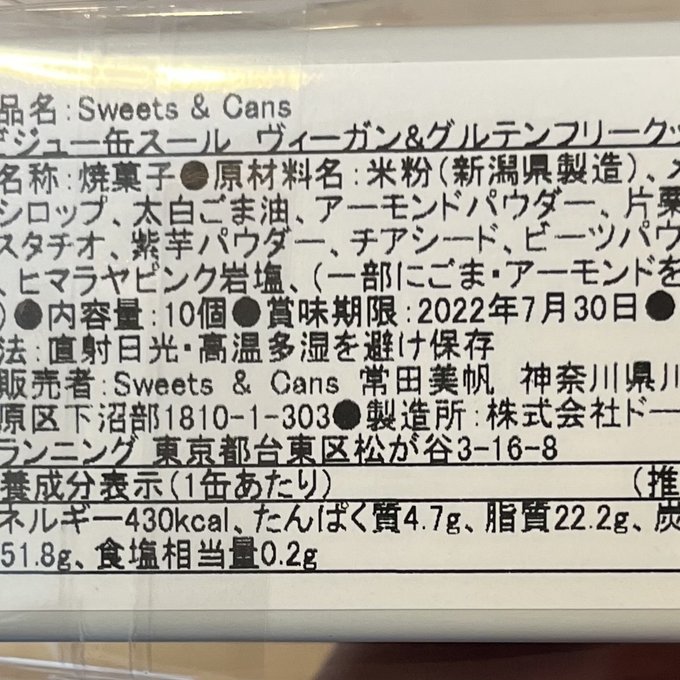 品名:Sweets & Cans
ジュー缶スール ヴィーガン&グルテンフリークッ
名称:焼菓子●原材料名:米粉(新潟県製造)、メ
シロップ、太白ごま油、アーモンドパウダー、片栗
スタチオ、紫芋パウダー、チアシード、ビーツパウ
、ヒマラヤピンク岩塩、(一部にごま・アーモンドを
)●内容量:10個●賞味期限:2022年7月30日●
法:直射日光・高温多湿を避け保存
販売者:Sweets & Cans 常田美帆 神奈川県川
原区下沼部1810-1-303●製造所:株式会社ドー
ランニング 東京都台東区松が谷3-16-8
養成分表示(1缶あたり) (推
ネルギー430kcal、たんぱく質4.7g、脂質22.2g、炭
51.8g、食塩相当量0.2g